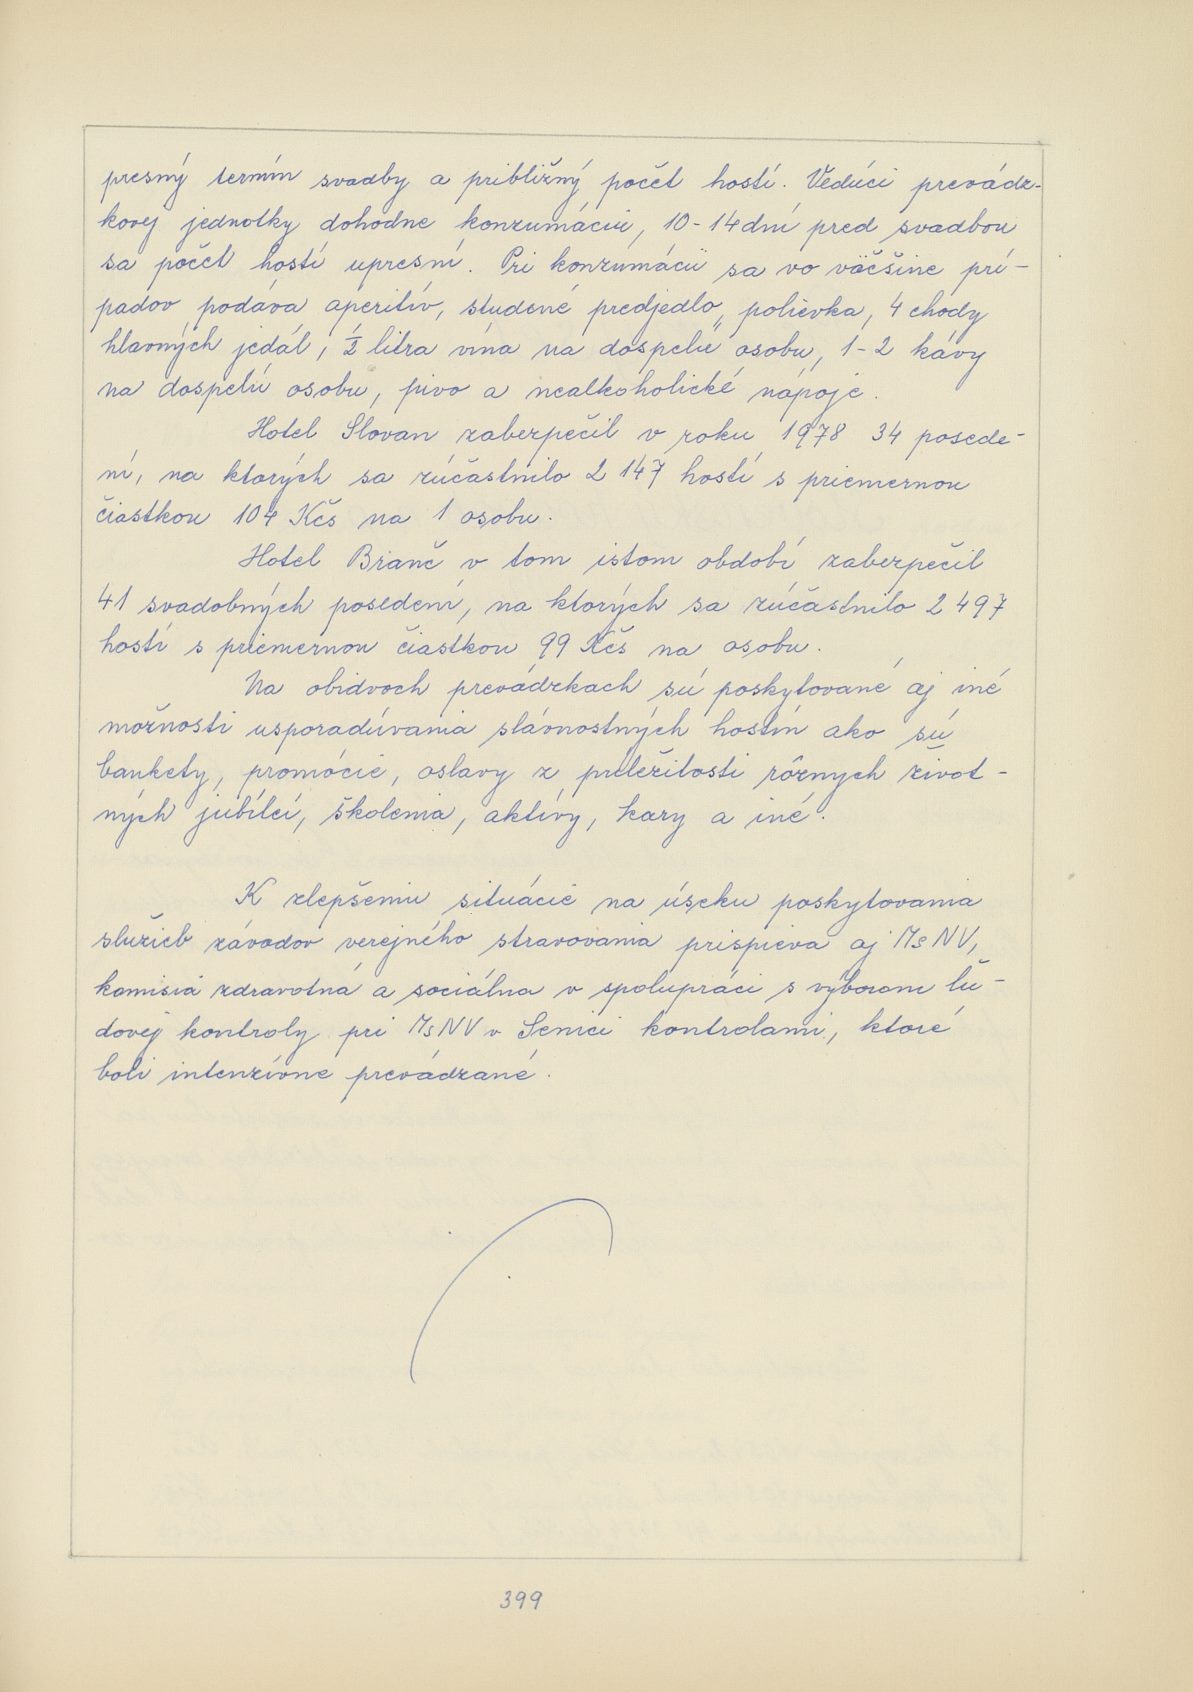 presný termín svadby a približný počet hostí. Vedúci prevádz-
kovej jednotky dohodne konzumáciu, 10-14 dní pred svadbou
sa počet hostí upresní. Pri konzumácii sa vo väčšine prí-
padov podáva aperitív, studené predjedlo, polievka, 4 chody
hlavných jedál, ½ litra vína na dospelú osobu, 1-2 kávy
na dospelú osobu, pivo a nealkoholické nápoje.
Hotel Slovan zabezpečil v roku 1978 34 posede-
ní, na ktorých sa zúčastnilo 2 147 hostí s priemernou
čiastkou 104 Kčs na 1 osobu.
Hotel Branč v tom istom období zabezpečil
41 svadobných posedení, na ktorých sa zúčastnilo 2 497
hostí s priemernou čiastkou 99 Kčs na osobu.
Na obidvoch prevádzkach sú poskytované aj iné
možnosti usporadúvania slávnostných hostín ako sú
bankety, promócie, oslavy z príležitosti rôznych život-
ných jubileí, školenia, aktívy, kary a iné.
K zlepšeniu situácie na úseku poskytovania
služieb závodov verejného stravovania prispieva aj MsNV,
komisia zdravotná a sociálna v spolupráci s výborom ľu-
dovej kontroly pri MsNV v Senici kontrolami, ktoré
boli intenzívne prevádzané.
399